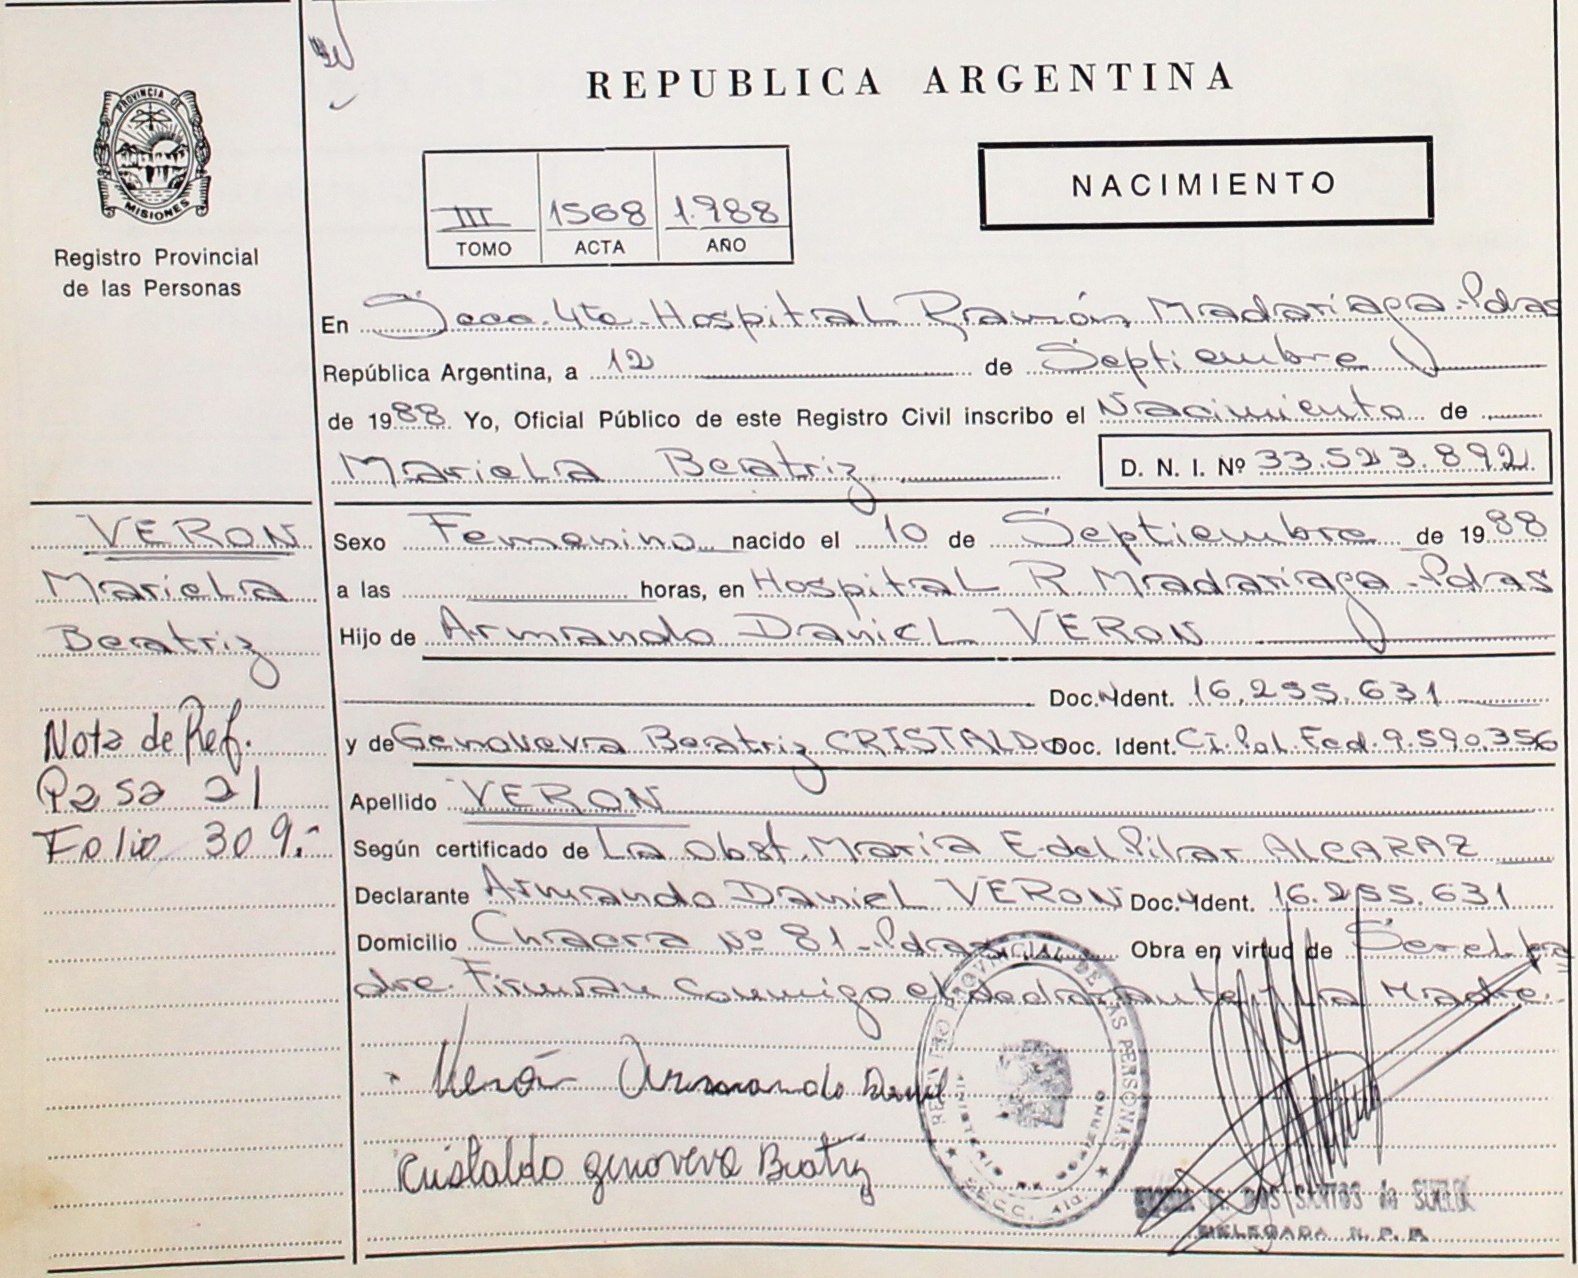 REPUBLICA ARGENTINA
PROVINCIA DE
MISIONES
Registro Provincial
de las Personas
III 1568 1.988
TOMO ACTA AÑO
NACIMIENTO
En Secc. 4ta. Hospital Ramón Madariaga - Pdas
República Argentina, a 12 de Septiembre
de 1988 Yo, Oficial Público de este Registro Civil inscribo el Nacimiento de
Mariela Beatriz D. N. I. Nº 33.523.892
VERON
Mariela
Beatriz
Nota de Ref.
Pasa al
Folio 309.-
Sexo Femenino nacido el 10 de Septiembre de 1988
a las horas, en Hospital R. Madariaga - Pdas
Hijo de Armando Daniel VERON
Doc. N Ident. 16.255.631
y de Genoveva Beatriz CRISTALDO Doc. Ident. C.I. Pol. Fed. 9.590.356
Apellido VERON
Según certificado de La Obst. María E. del Pilar ALCARAZ
Declarante Armando Daniel VERON Doc. N Ident. 16.255.631
Domicilio Chacra Nº 81 - Pdas Obra en virtud de Ser el pa
dre. Firman conmigo el declarante y la Madre.
Verón Armando Daniel
Cristaldo Genoveva Beatriz
REGISTRO PROVINCIAL DE LAS PERSONAS
MINISTERIO DE GOBIERNO
SECC. 4ta.
DOS SANTOS de
DELEGADA R. P. P.